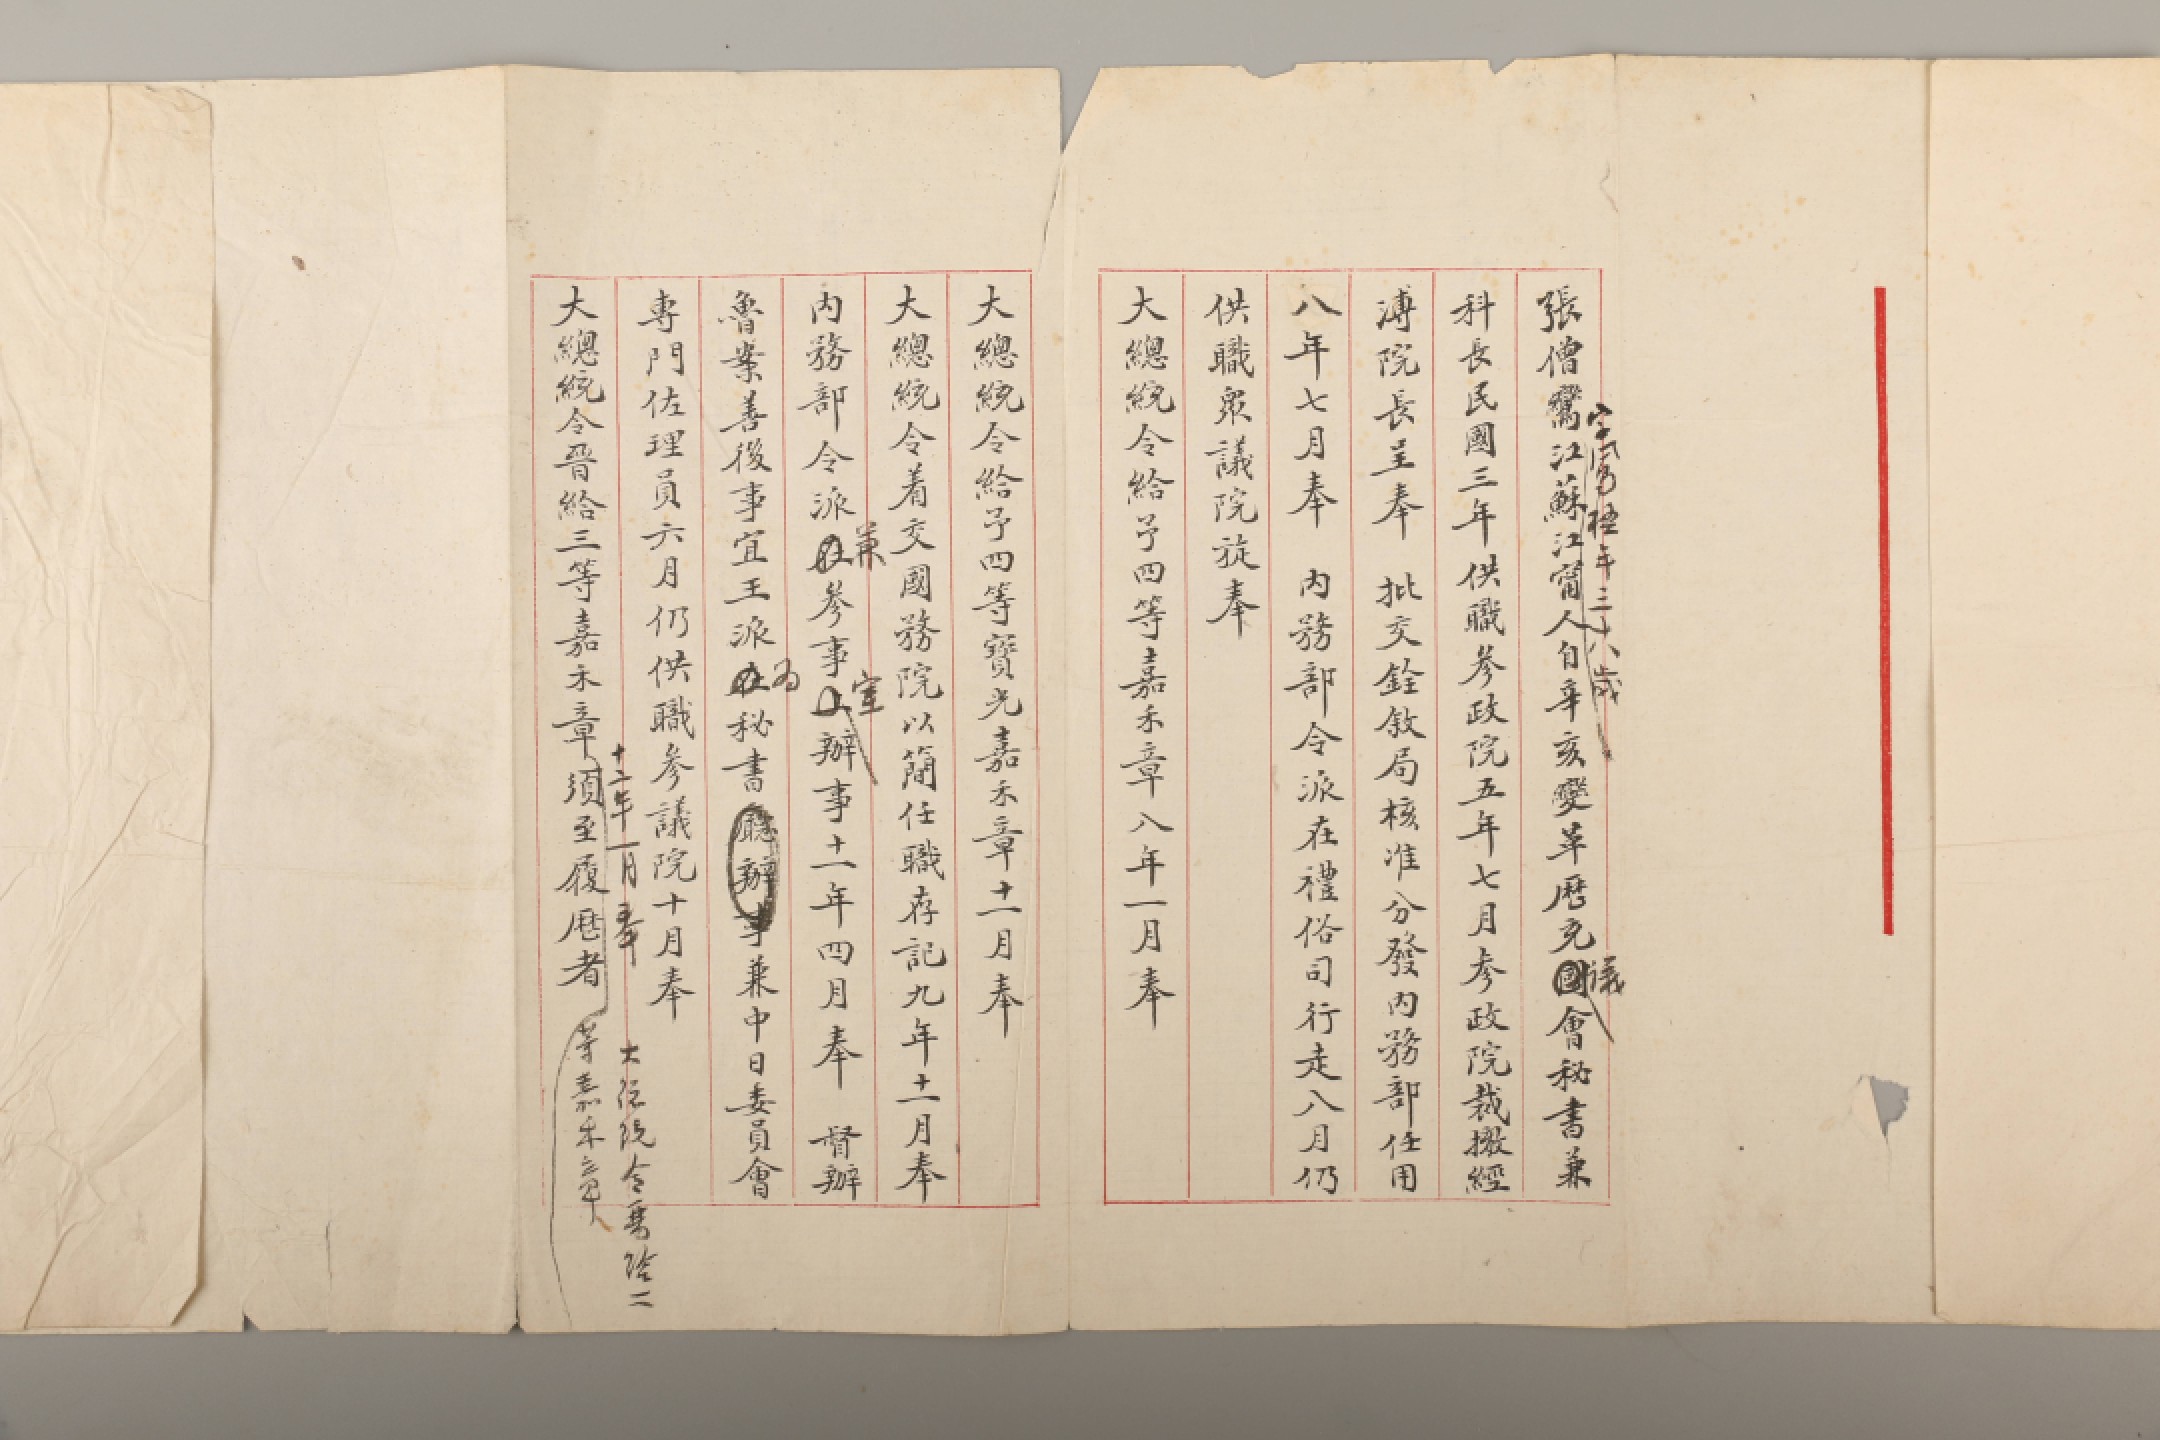 張僧鸞江蘇江甯人自辛亥變革歷充國會秘書兼
字 年三十八歲
議
科長民國三年供職參政院五年七月參政院裁撤經
溥院長呈奉 批交銓敘局核准分發內務部任用
八年七月奉 內務部令派在禮俗司行走八月仍
供職眾議院旋奉
大總統令給予四等嘉禾章八年一月奉
大總統令給予四等寶光嘉禾章十一月奉
大總統令着交國務院以簡任職存記九年十一月奉
內務部令派在參事上辦事十一年四月奉 督辦
兼
室
魯案善後事宜王派在秘書廳辦事兼中日委員會
為
專門佐理員六月仍供職參議院十月奉
大總統令晉給三等嘉禾章須至履歷者
十二年一月奉
大總統令晉給二
等嘉禾章